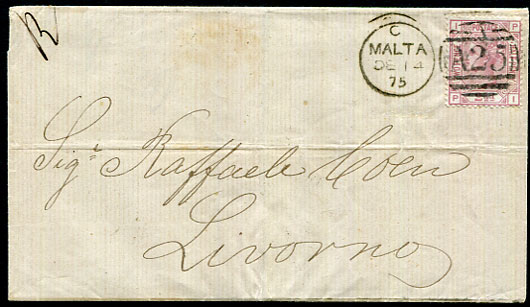 C
MALTA
DE 14
75
A25
I P
P I
Sigr Raffaele Coen
Livorno